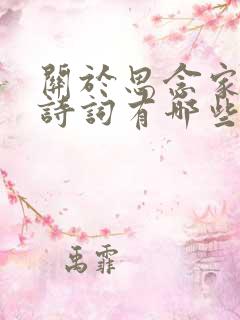 關於思念家
詩詞有哪些
禹霏